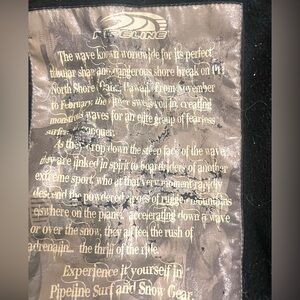 PIPELINE
The wave known worldwide for its perfect
tubular shape and dangerous shore break on
North Shore Oahu, Hawaii. From November
to February, the water swells you in, creating
monstrous waves for an elite group of fearless
surfers conquer.
As they drop down the steep face of the wave,
they are linked in spirit to boardriders of another
extreme sport, who at that very moment rapidly
descend the powdered faces of rugged mountains
elswhere on the planet. accelerating down a wave
or over the snow, they all feel the rush of
adrenalin... the thrill of the ride.
Experience it yourself in
Pipeline Surf and Snow Gear.